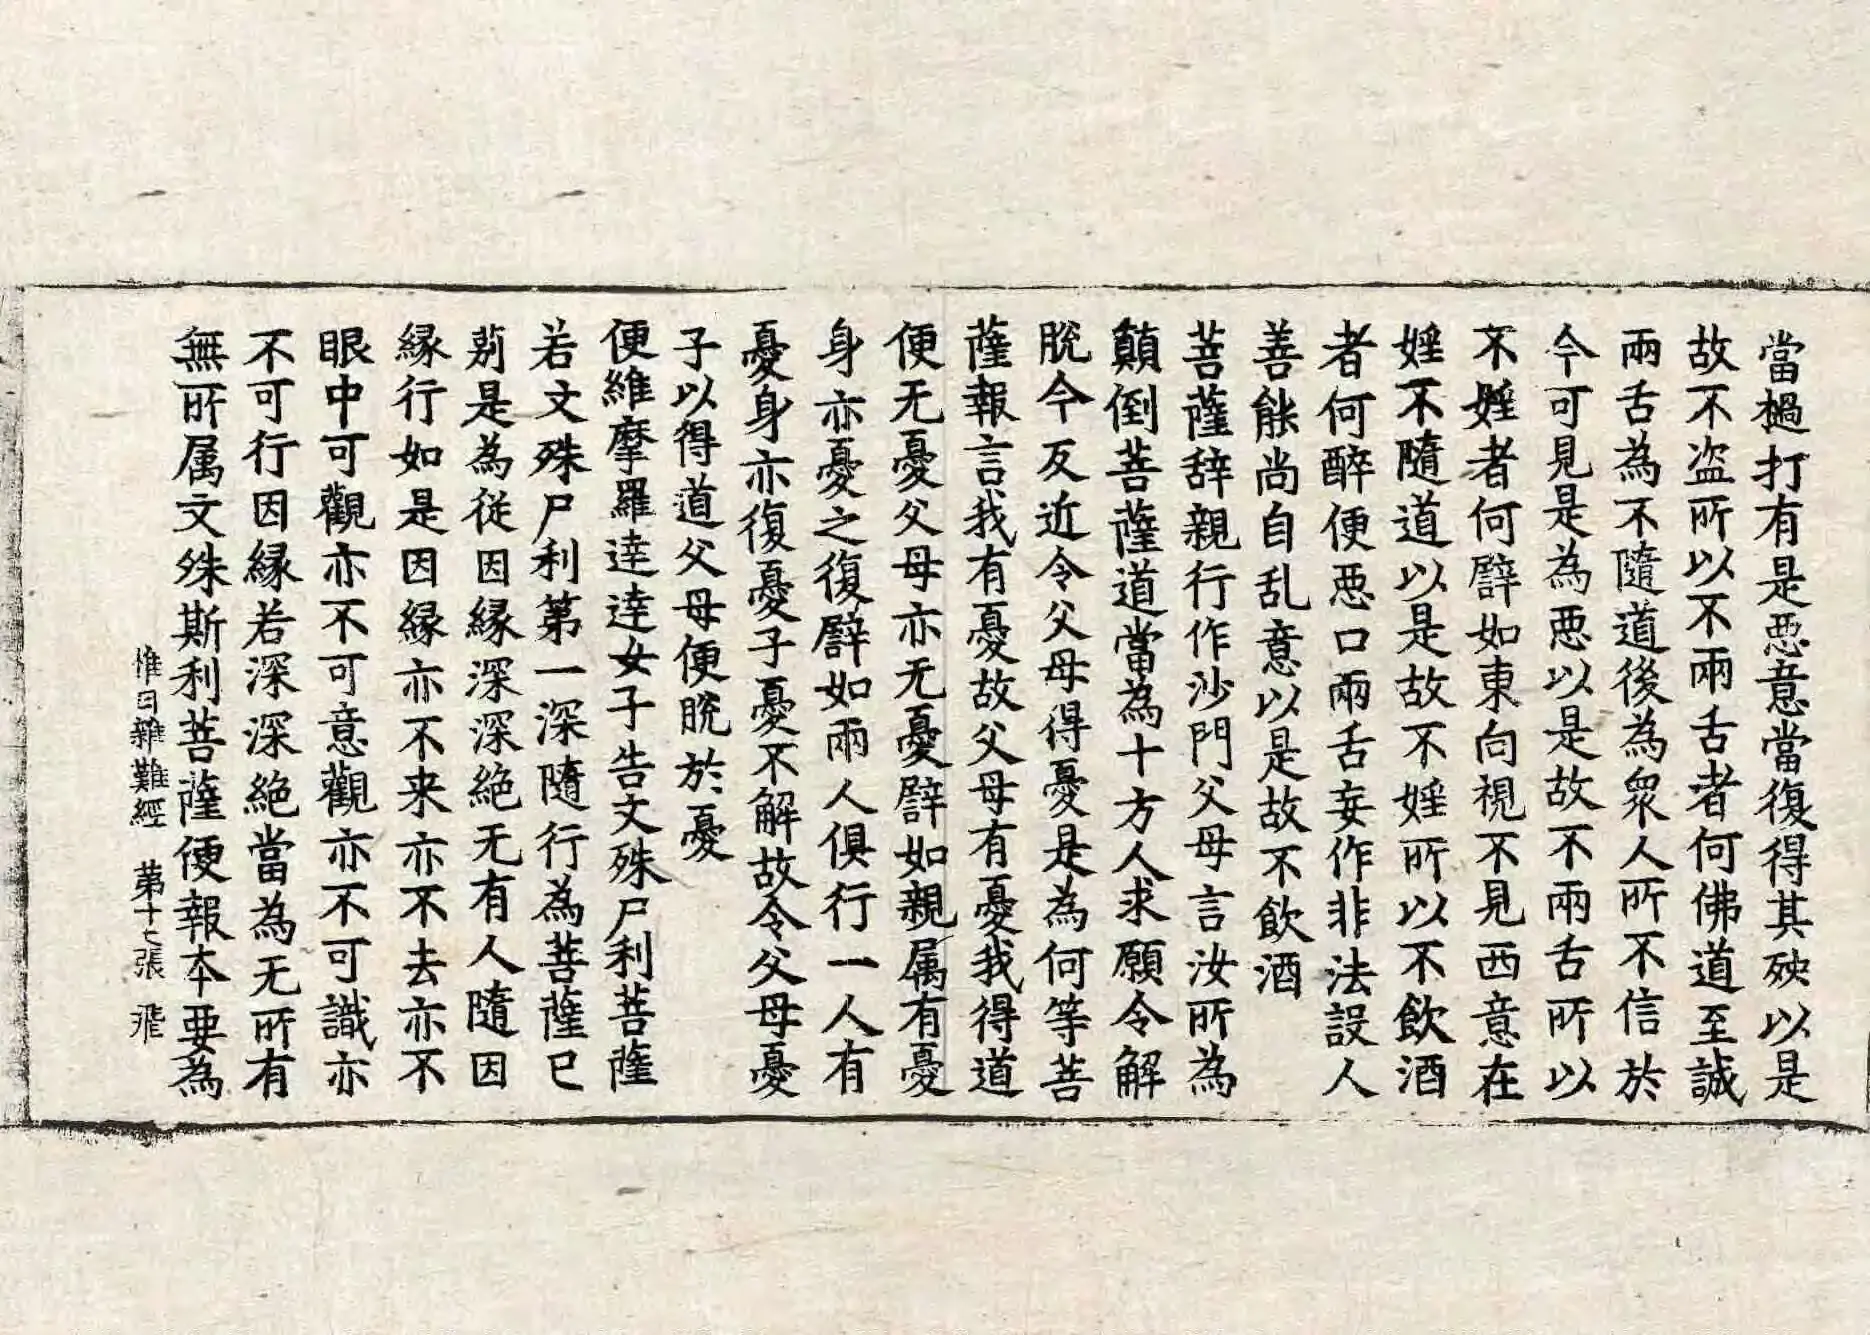 當檛打有是惡意當復得其殃以是
故不盜所以不兩舌者何佛道至誠
兩舌為不隨道後為衆人所不信於
今可見是為惡以是故不兩舌所以
不婬者何譬如東向視不見西意在
婬不隨道以是故不婬所以不飲酒
者何醉便惡口兩舌妄作非法設人
善能尚自乱意以是故不飲酒
菩薩辞親行作沙門父母言汝所為
顛倒菩薩道當為十方人求願令解
脫今反近令父母得憂是為何等菩
薩報言我有憂故父母有憂我得道
便无憂父母亦无憂譬如親属有憂
身亦憂之復譬如兩人俱行一人有
憂身亦復憂子憂不解故令父母憂
子以得道父母便脫於憂
便維摩羅達達女子告文殊尸利菩薩
若文殊尸利第一深隨行為菩薩已
莂是為從因緣深深絕无有人隨因
緣行如是因緣亦不来亦不去亦不
眼中可觀亦不可意觀亦不可識亦
不可行因緣若深深絕當為无所有
無所属文殊斯利菩薩便報本要為
惟曰雜難經 第十七張 飛